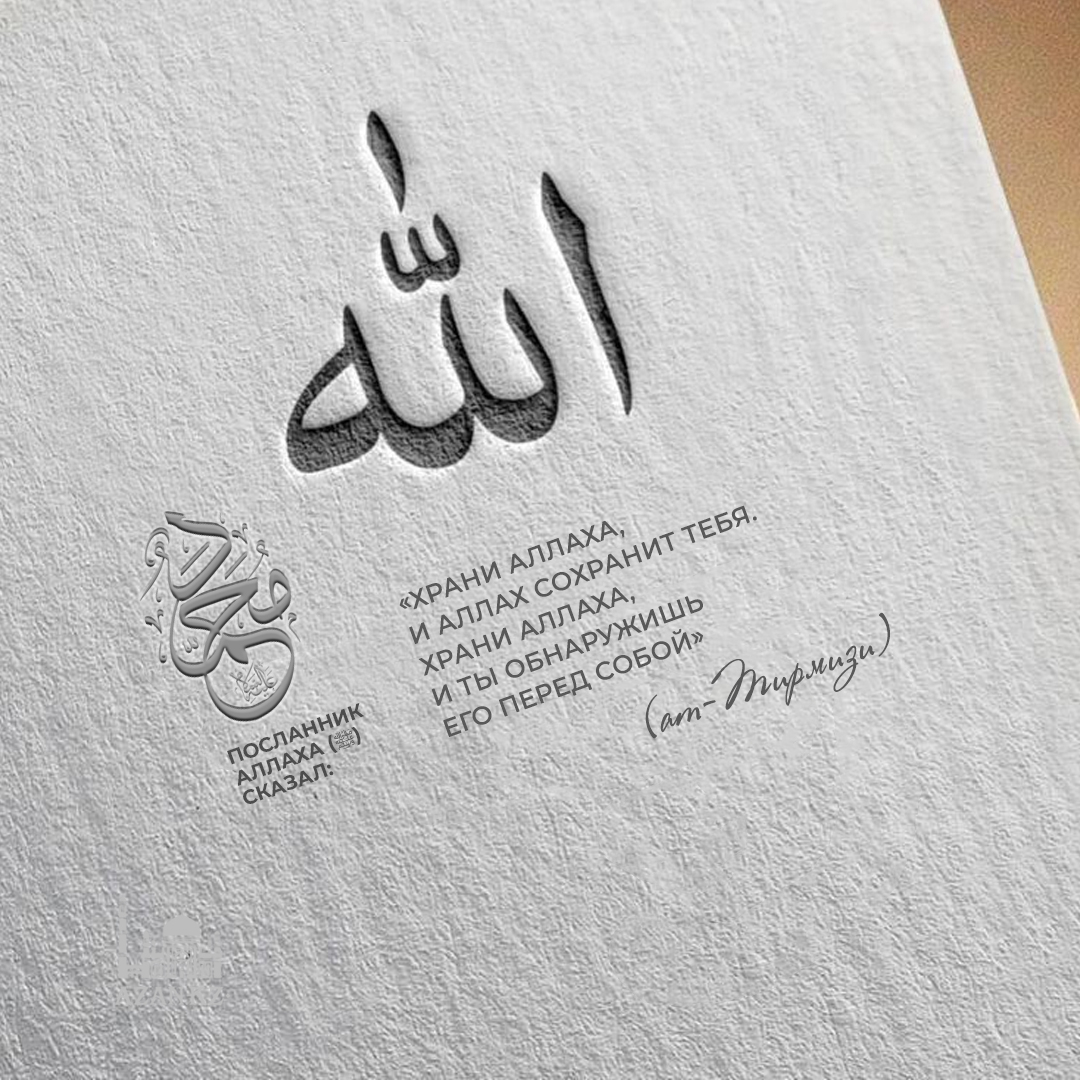 الله
محمد
ПОСЛАННИК
АЛЛАХА (ﷺ)
СКАЗАЛ:
«ХРАНИ АЛЛАХА,
И АЛЛАХ СОХРАНИТ ТЕБЯ.
ХРАНИ АЛЛАХА,
И ТЫ ОБНАРУЖИШЬ
ЕГО ПЕРЕД СОБОЙ»
(ат-Тирмизи)